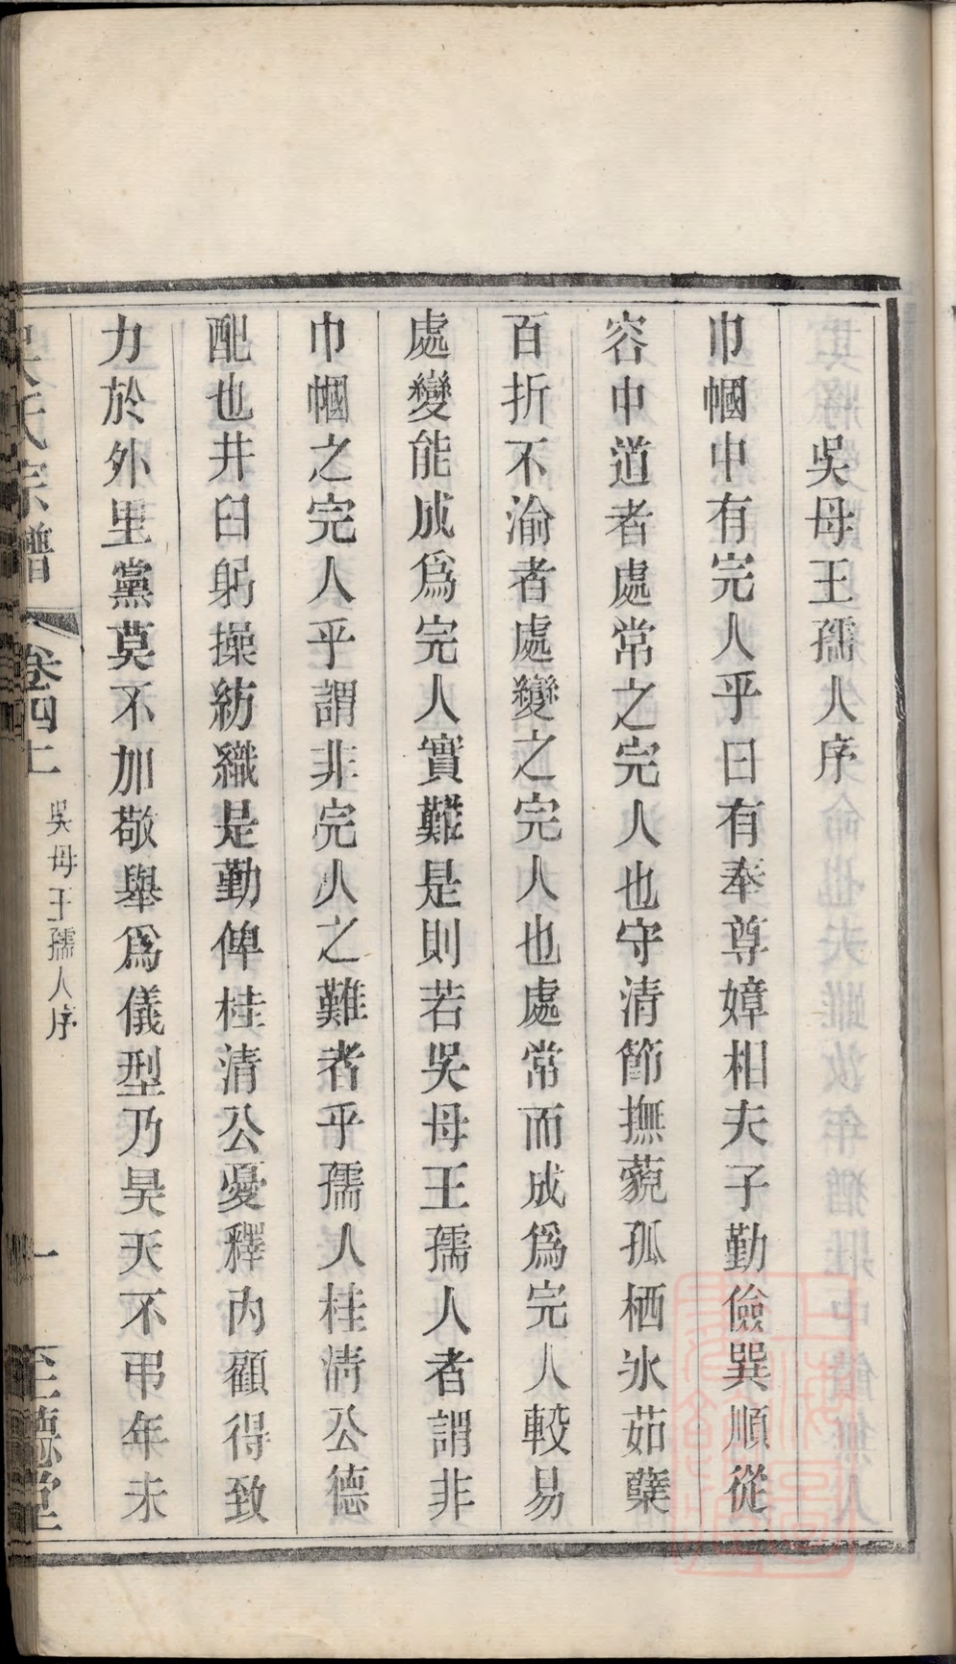 吳母王孺人序
巾幗中有完人乎曰有奉尊嫜相夫子勤儉巽順從
容中道者處常之完人也守清節撫藐孤栖氷茹櫱
百折不渝者處變之完人也處常而成爲完人較易
處變能成爲完人實難是則若吳母王孺人者謂非
巾幗之完人乎謂非完人之難者乎孺人桂清公德
配也井臼躬操紡織是勤俾桂清公憂釋內顧得致
力於外里黨莫不加敬舉爲儀型乃昊天不弔年未
吳氏宗譜 卷四上 吳母王孺人序 一 至德堂